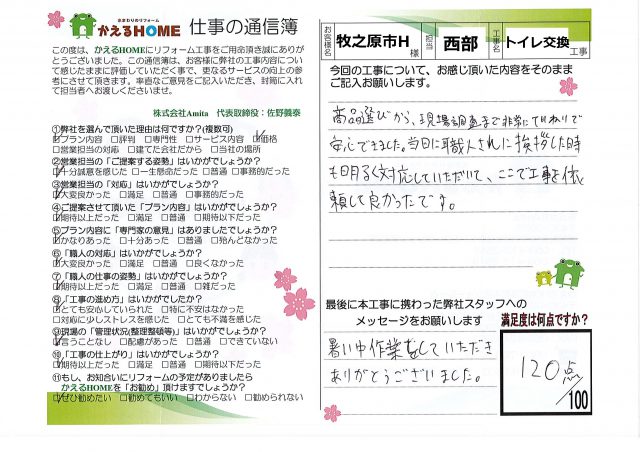 水まわりのリフォーム
かえるHOME 仕事の通信簿
この度は、かえるHOMEにリフォーム工事をご用命頂き誠にありが
とうございました。この通信簿は、お客様に弊社の工事内容につい
て感じたままに評価していただく事で、更なるサービスの向上の参
考にさせて頂きます。率直なご意見をご記入いただき、封筒に入れ
て担当者へお渡しくださいませ。
株式会社Amita 代表取締役：佐野義泰
①弊社を選んで頂いた理由は何ですか?(複数可)
□プラン内容 □評判 □専門性 □サービス内容 □価格
□営業担当の対応 □建てた会社だから □当社の場所
②営業担当の「ご提案する姿勢」はいかがでしょうか?
□十分誠意を感じた □一生懸命だった □普通 □事務的だった
③営業担当の「対応」はいかがでしょうか?
□大変良かった □満足 □普通 □事務的だった
④ご提案させて頂いた「プラン内容」はいかがでしょうか?
□期待以上だった □満足 □普通 □期待以下だった
⑤プラン内容に「専門家の意見」はありましたでしょうか?
□かなりあった □十分あった □普通 □殆んどなかった
⑥「職人の対応」はいかがでしょうか?
□大変良かった □満足 □普通 □良くなかった
⑦「職人の仕事の姿勢」はいかがでしょうか?
□期待以上だった □満足 □普通 □雑だった
⑧「工事の進め方」はいかがでしたか?
□とても安心していられた □特に不安はなかった
□対応に少しストレスを感じた □とても不満を感じた
⑨現場の「管理状況(整理整頓等)」はいかがでしょうか?
□言うことなし □配慮があった □普通 □できていない
⑩「工事の仕上がり」はいかがでしょうか?
□期待以上だった □満足 □普通 □期待以下だった
⑪もし、お知合いにリフォームの予定がありましたら
かえるHOMEを「お勧め」頂けますでしょうか?
□ぜひ勧めたい □勧めてもいい □わからない □勧められない
お客様名 牧之原市H 様 担当 西部 工事名 トイレ交換 工事
今回の工事について、お感じ頂いた内容をそのまま
ご記入お願いします。
商品選びから、現場調査まで非常にていねいで
安心できました。当日に職人さんに挨拶した時
も明るく対応していただいて、ここで工事を依
頼して良かったです。
最後に本工事に携わった弊社スタッフへの
メッセージをお願いします
暑い中作業をしていただき
ありがとうございました。
満足度は何点ですか?
120点
/100